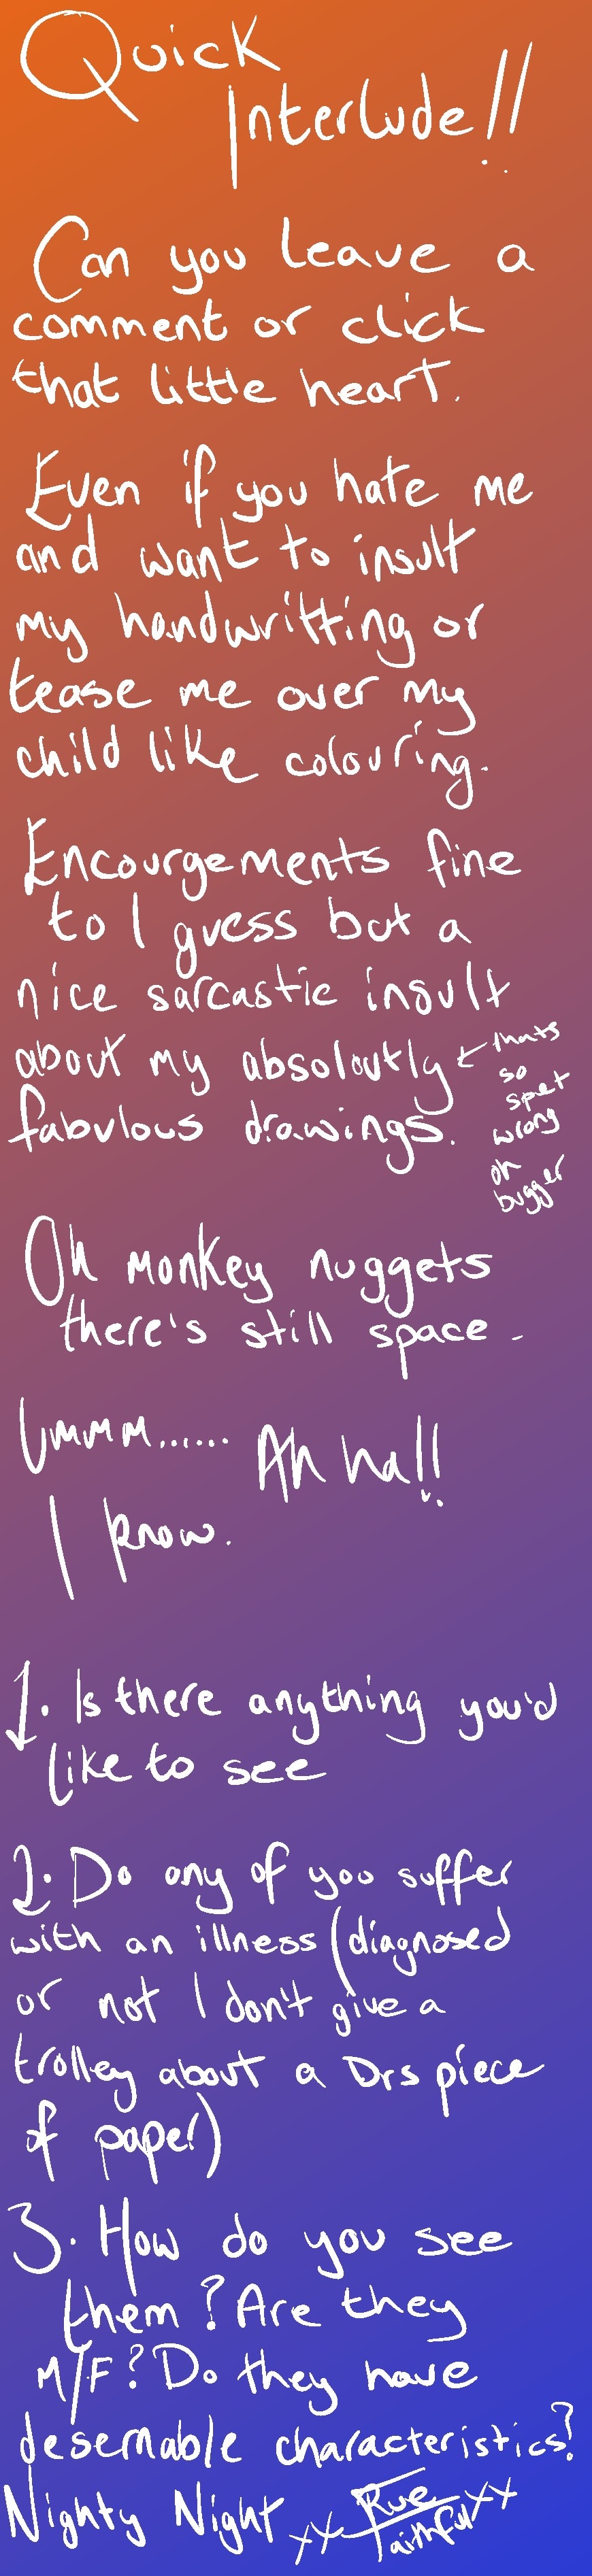 Quick
Interlude!!
Can you leave a
comment or click
that little heart.
Even if you hate me
and want to insult
my handwritting or
tease me over my
child like colouring.
Encourgements fine
to I guess but a
nice sarcastic insult
about my absoloutly ← thats
so
spelt
wrong
oh
bugger
fabulous drawings.
Oh monkey nuggets
there's still space.
Ummm...... Ah ha!!
I know.
1. Is there anything you'd
like to see
2. Do any of you suffer
with an illness (diagnosed
or not I don't give a
trolley about a Drs piece
of paper)
3. How do you see
them? Are they
M/F? Do they have
desernable characteristics?
Nighty Night xx Rue
Faithful xx